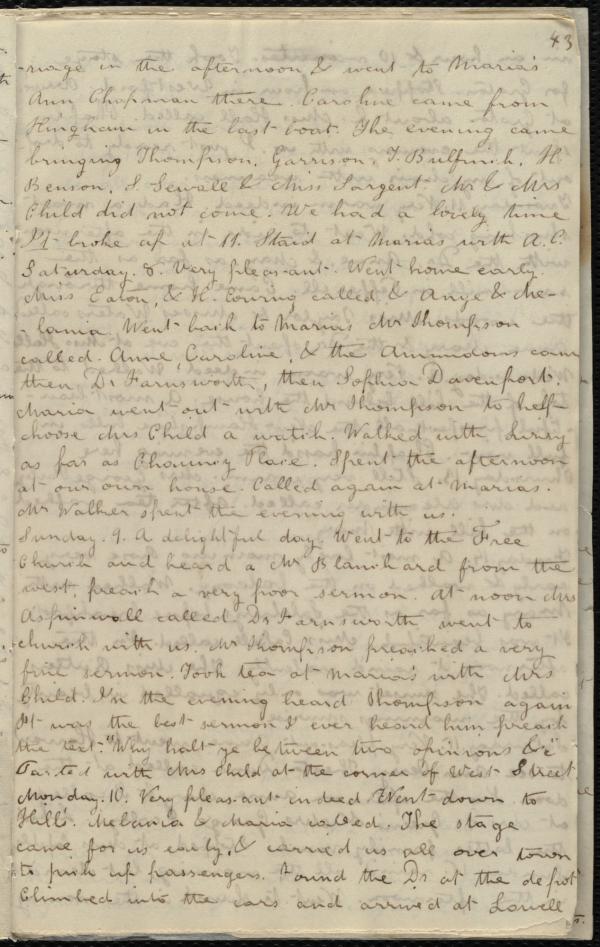 43
-riage in the afternoon & went to Maria's
Ann Chapman there. Caroline came from
Hingham in the last boat. The evening came
bringing Thompson, Garrison, T. Bulfinch, H.
Benson, S. Sewall & Miss Sargent. Mr & Mrs
Child did not come. We had a lovely time
It broke up at 11. Staid at Marias with A. C.
Saturday. 8. Very pleasant. Went home early.
Miss Eaton, & H. Loring called & Ange & Me-
-lania. Went back to Marias Mr Thompson
called. Anne, Caroline, & the Ammidons came
then Dr Farnsworth, then Sophia Davenport.
Maria went out with Mr Thompson to help
choose Mrs Child a watch. Walked with
as far as Chauncy Place. Spent the afternoon
at our own house. Called again at Marias.
Mr Walker spent the evening with us.
Sunday. 9. A delightful day. Went to the Free
Church and heard a Mr Blanchard from the
west, preach a very poor sermon. At noon Mrs
Aspinwall called. Dr Farnsworth went to
church with us. Mr Thompson preached a very
fine sermon. Took tea at Maria's with Mrs
Child. In the evening heard Thompson again
It was the best sermon I ever heard him preach
the text "Why halt ye between two opinions &c"
Parted with Mrs Child at the corner of West Street.
Monday. 10. Very pleasant indeed Went down to
Hill's. Melania & Maria called. The stage
came for us early, & carried us all over town
to pick up passengers. Found the Drs at the depot
Climbed into the cars and arrived at Lowell